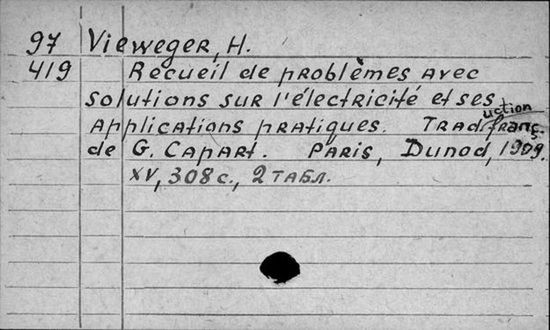 97 Vieweger, H.
419 Recueil de problèmes avec
solutions sur l'électricité et ses
applications pratiques. Traduction franç.
de G. Capart. Paris, Dunod, 1909.
XV, 308 с., 2 табл.